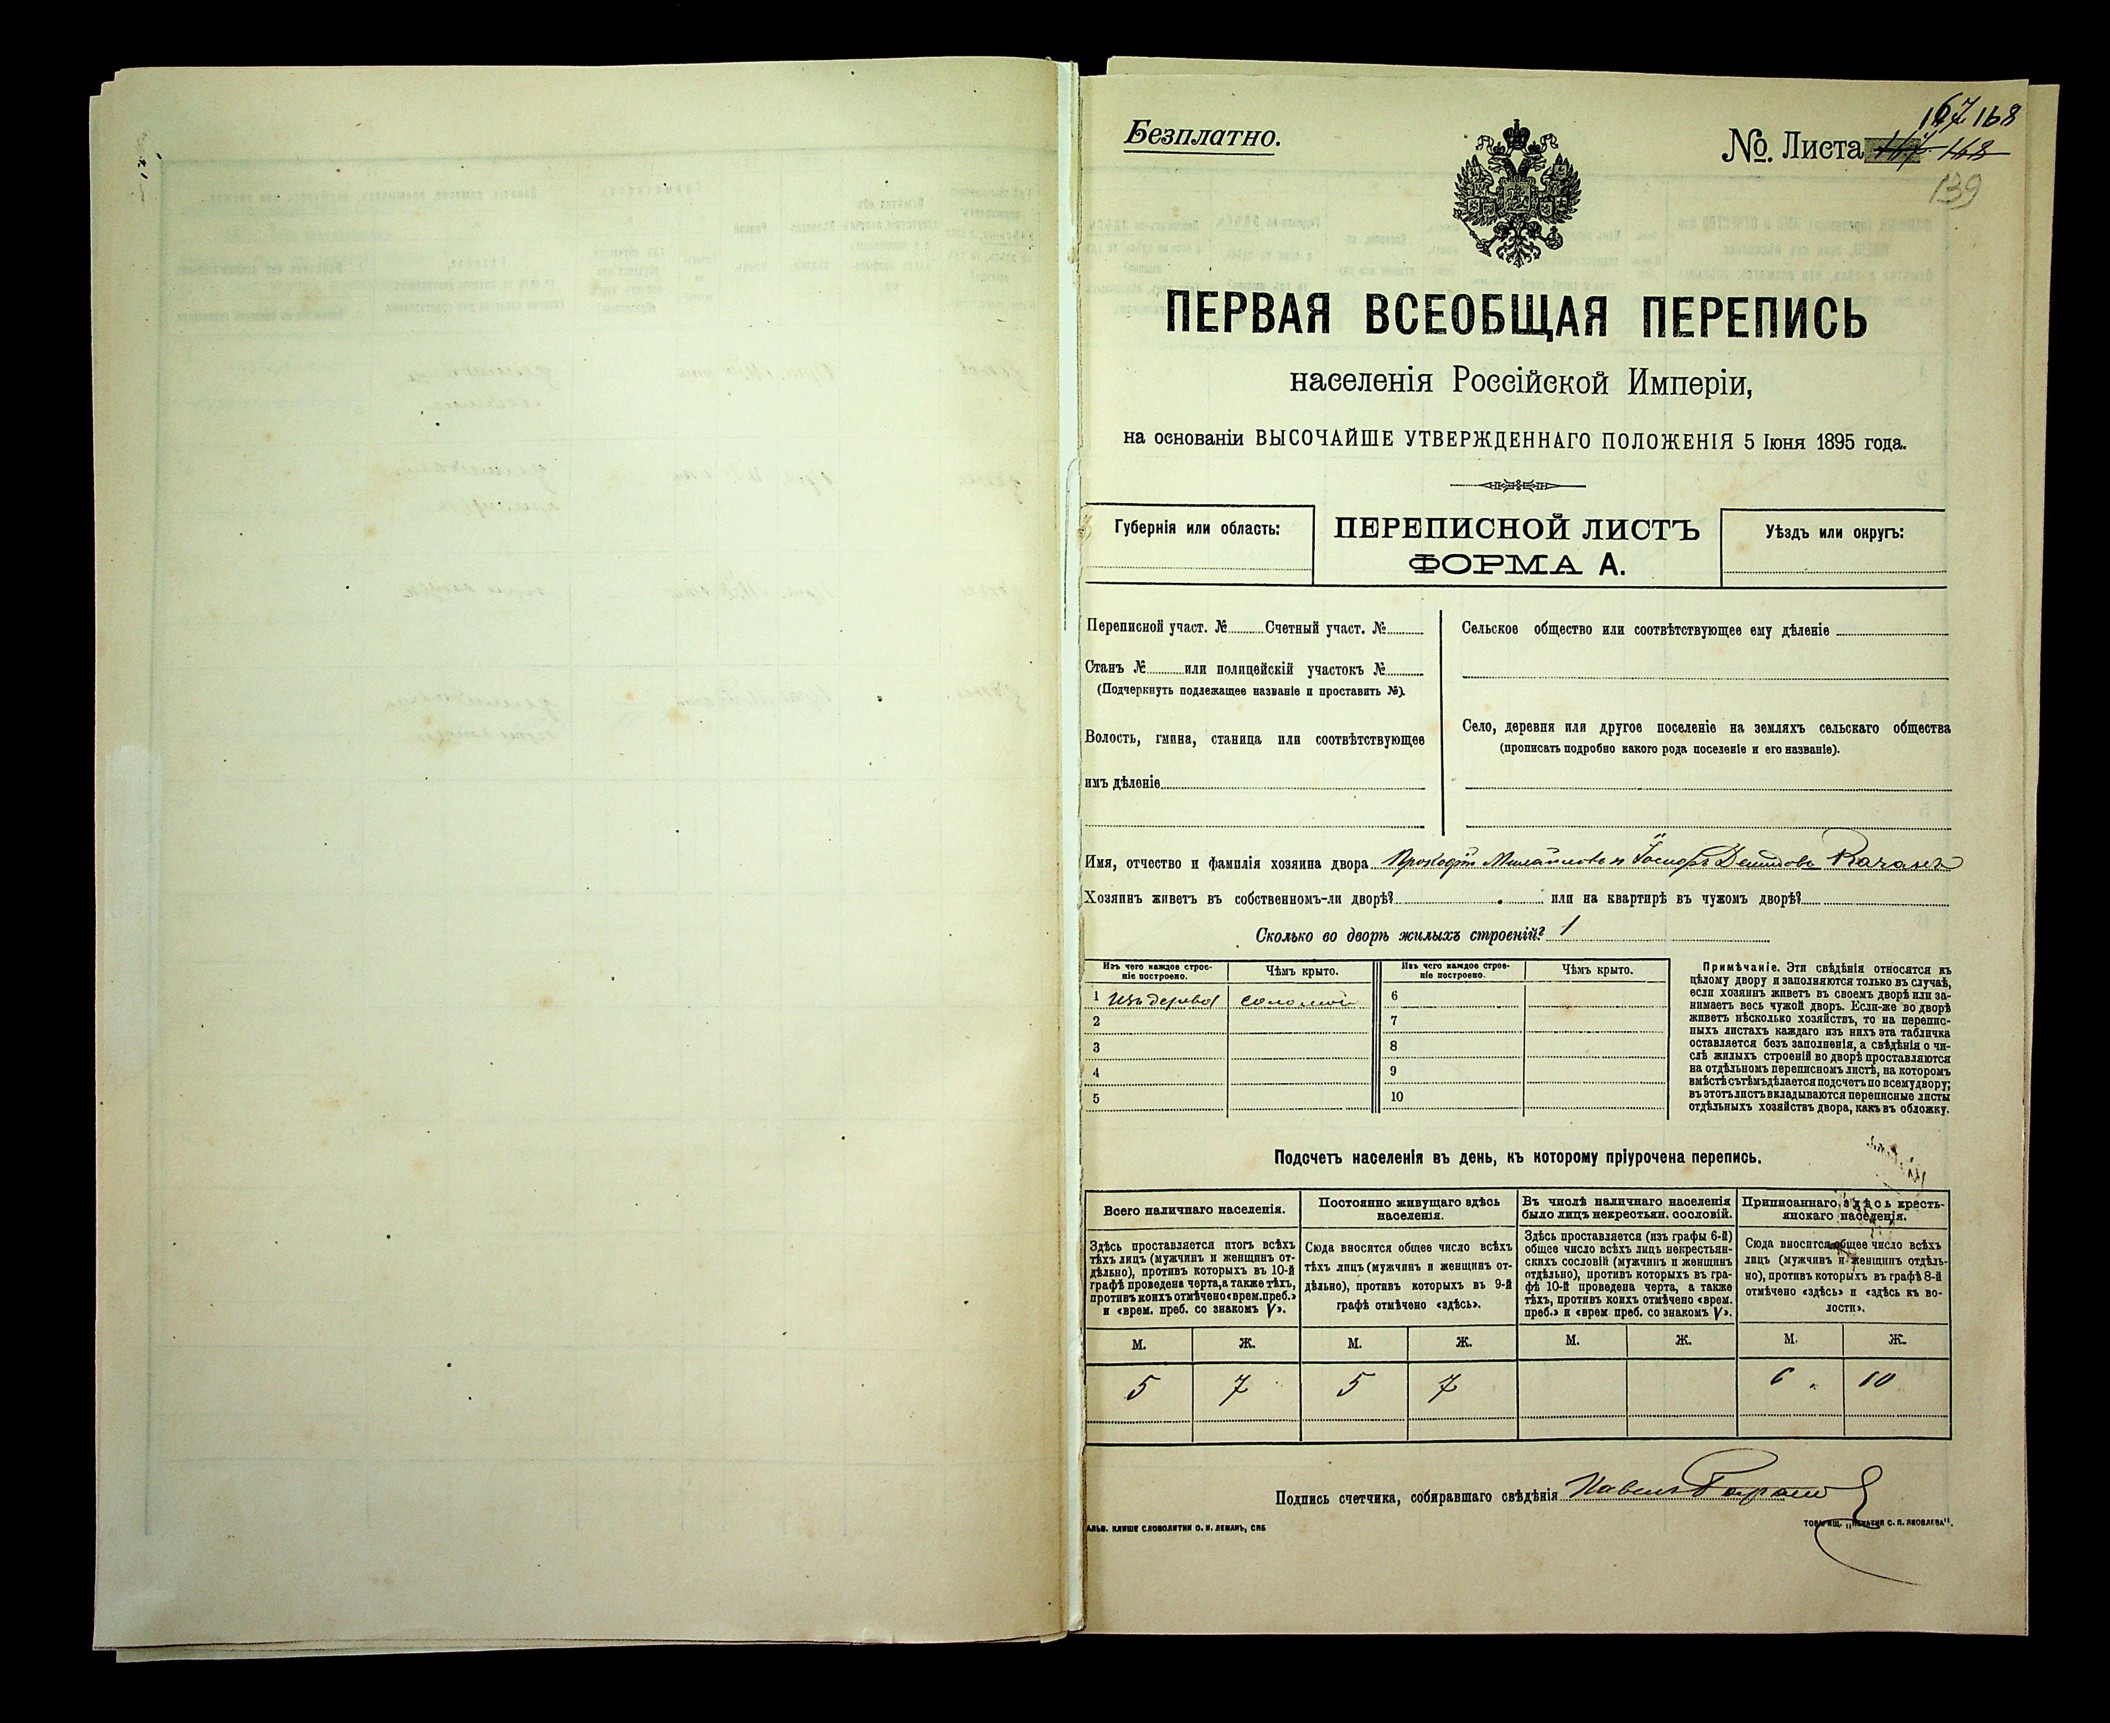 Безплатно.
№. Листа 167 168
167 168
139
ПЕРВАЯ ВСЕОБЩАЯ ПЕРЕПИСЬ
населенія Россійской Имперіи,
на основаніи ВЫСОЧАЙШЕ УТВЕРЖДЕННАГО ПОЛОЖЕНІЯ 5 Іюня 1895 года.
Губернія или область:
ПЕРЕПИСНОЙ ЛИСТЪ
ФОРМА А.
Уѣздъ или округъ:
Переписной участ. № Счетный участ. №
Станъ № или полицейскій участокъ №
(Подчеркнуть подлежащее названіе и проставить №).
Волость, гмина, станица или соотвѣтствующее
имъ дѣленіе
Сельское общество или соотвѣтствующее ему дѣленіе
Село, деревня или другое поселеніе на земляхъ сельскаго общества
(прописать подробно какого рода поселеніе и его названіе).
Имя, отчество и фамилія хозяина двора Михайловъ и Демидовъ Качанъ
Хозяинъ живетъ въ собственномъ-ли дворѣ? или на квартирѣ въ чужомъ дворѣ?
Сколько во дворѣ жилыхъ строеній? 1
Изъ чего каждое строе-
ніе построено.
Чѣмъ крыто.
Изъ чего каждое строе-
ніе построено.
Чѣмъ крыто.
1 Изъ дерева соломой
2
3
4
5
6
7
8
9
10
Примѣчаніе. Эти свѣдѣнія относятся къ
цѣлому двору и заполняются только въ случаѣ,
если хозяинъ живетъ въ своемъ дворѣ или за-
нимаетъ весь чужой дворъ. Если-же во дворѣ
живетъ нѣсколько хозяйствъ, то на перепис-
ныхъ листахъ каждаго изъ нихъ эта табличка
оставляется безъ заполненія, а свѣдѣнія о чи-
слѣ жилыхъ строеній во дворѣ проставляются
на отдѣльномъ переписномъ листѣ, на которомъ
вмѣстѣ съ тѣмъ дѣлается подсчетъ по всему двору;
въ этотъ листъ вкладываются переписные листы
отдѣльныхъ хозяйствъ двора, какъ въ обложку.
Подсчетъ населенія въ день, къ которому пріурочена перепись.
Всего наличнаго населенія.
Постоянно живущаго здѣсь
населенія.
Въ числѣ наличнаго населенія
было лицъ некрестьян. сословій.
Приписаннаго здѣсь кресть-
янскаго населенія.
Здѣсь проставляется итогъ всѣхъ
тѣхъ лицъ (мужчинъ и женщинъ от-
дѣльно), противъ которыхъ въ 10-й
графѣ проведена черта, а также тѣхъ,
противъ коихъ отмѣчено «врем. преб.»
и «врем. преб. со знакомъ V».
Сюда вносится общее число всѣхъ
тѣхъ лицъ (мужчинъ и женщинъ от-
дѣльно), противъ которыхъ въ 9-й
графѣ отмѣчено «здѣсь».
Здѣсь проставляется (изъ графы 6-й)
общее число всѣхъ лицъ некрестьян-
скихъ сословій (мужчинъ и женщинъ
отдѣльно), противъ которыхъ въ гра-
фѣ 10-й проведена черта, а также
тѣхъ, противъ коихъ отмѣчено «врем.
преб.» и «врем преб. со знакомъ V».
Сюда вносится общее число всѣхъ
лицъ (мужчинъ и женщинъ отдѣль-
но), противъ которыхъ въ графѣ 8-й
отмѣчено «здѣсь» и «здѣсь къ во-
лости».
М. Ж. М. Ж. М. Ж. М. Ж.
5 7 5 7 6 10
Подпись счетчика, собиравшаго свѣдѣнія Павелъ
АЛЬВ. КЛИШЕ СЛОВОЛИТНИ О. И. ЛЕМАНЪ, СПБ
ТОВАРИЩ. „ПЕЧАТНЯ С. П. ЯКОВЛЕВА“.